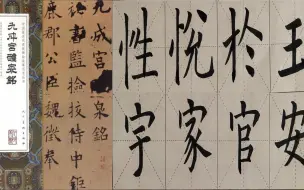 九成宮醴泉銘
九成宮醴泉銘
書監檢校侍中鉅
鹿郡公臣魏徵奉
性悅於
宇家官安